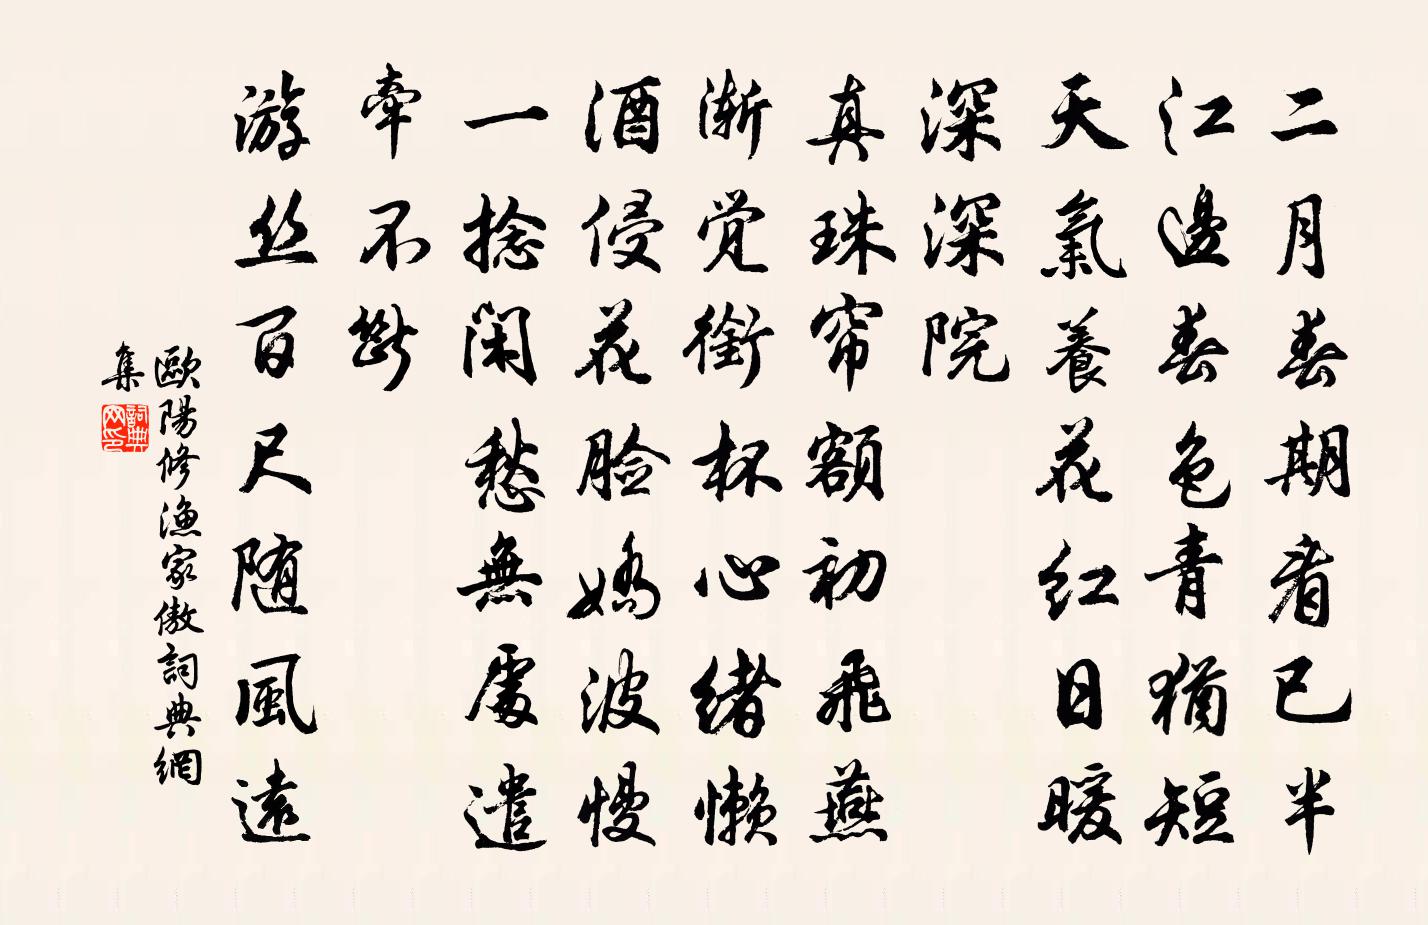 二月春期看已半
江邊春色青猶短
天氣養花红日暖
深深院
真珠帘額初飛燕
渐觉銜杯心緒懒
酒侵花脸嬌波慢
一捻闲愁無處遣
牽不斷
游丝百尺随風遠
歐陽修漁家傲詞典網
集
詞典
网印